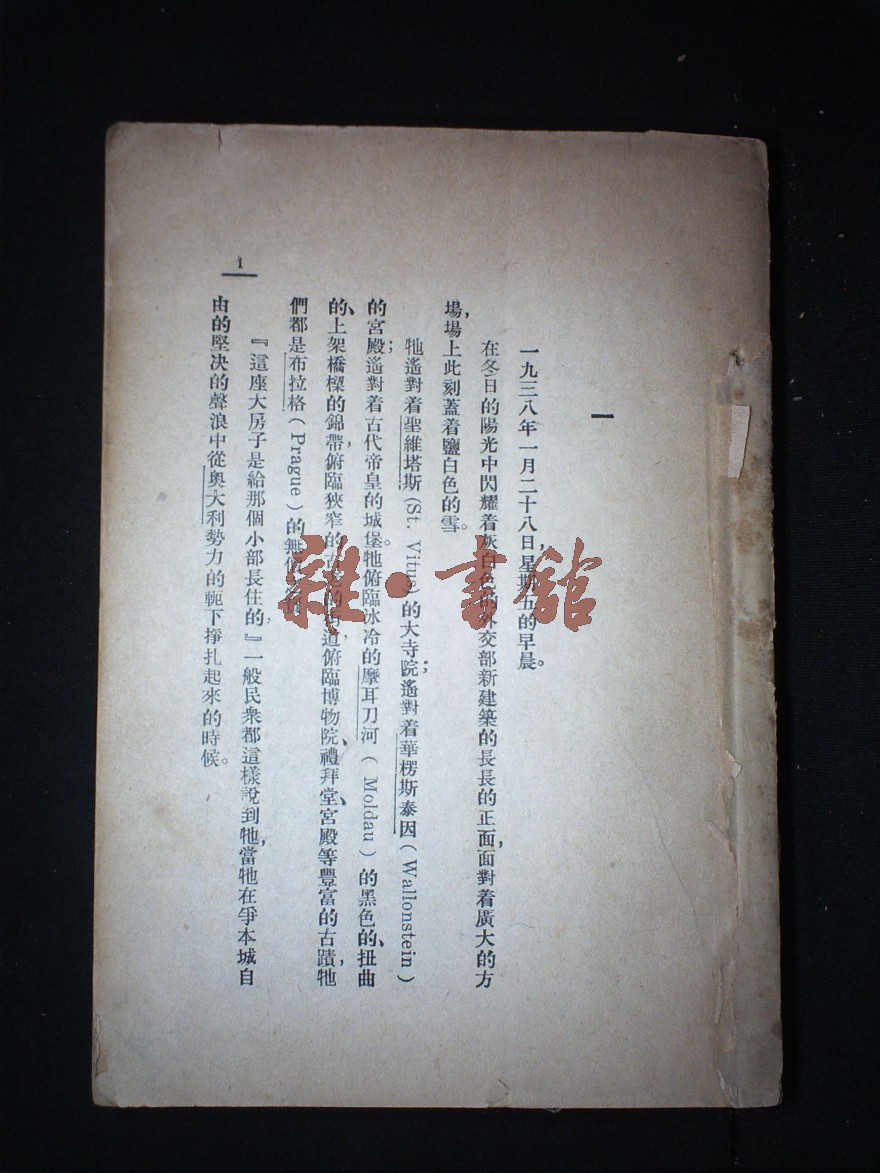 一
一九三八年一月二十八日，星期五的早晨。
在冬日的陽光中閃耀着灰白色的外交部新建築的長長的正面，面對着廣大的方
場，場上此刻蓋着鹽白色的雪。
牠遙對着聖維塔斯(St. Vitus)的大寺院；遙對着華楞斯泰因(Wallonstein)
的宮殿；遙對着古代帝皇的城堡。牠俯臨冰冷的摩耳刀河(Moldau)的黑色的、扭曲
的、上架橋樑的錦帶，俯臨狹窄的古老的街道，俯臨博物院、禮拜堂、宮殿等豐富的古蹟，牠
們都是布拉格(Prague)的無價
『這座大房子是給那個小部長住的，』一般民衆都這樣說到牠，當牠在爭本城自
由的堅决的聲浪中從奥大利勢力的軛下掙扎起來的時候。
1
雜·書館